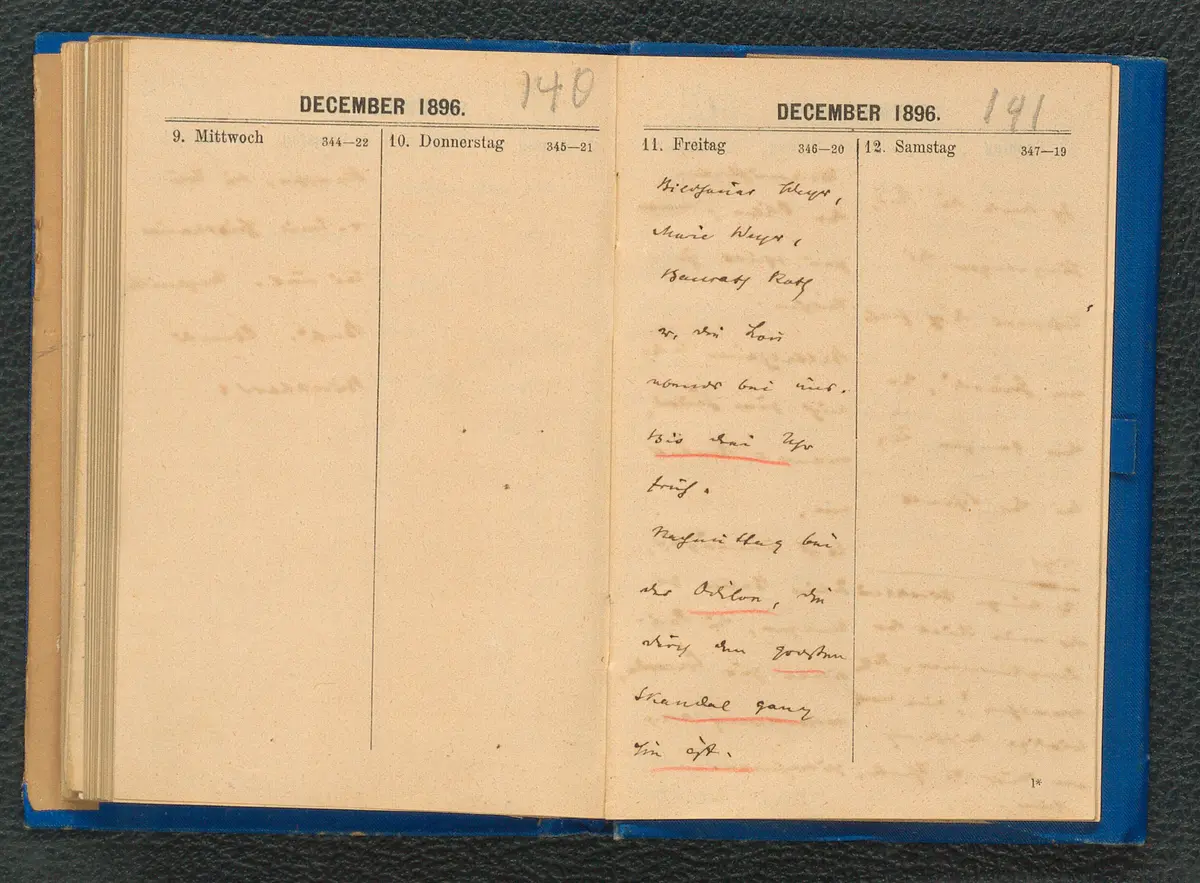 140
DECEMBER 1896.
9. Mittwoch 344—22
10. Donnerstag 345—21
141
DECEMBER 1896.
11. Freitag 346—20
Bildhauer Weyr,
Marie Weyr,
Baurath Roth
u. die Lou
abends bei uns.
Bis drei Uhr
früh.
Nachmittag bei
der Odilon, die
durch den großen
Skandal ganz
hin ist.
12. Samstag 347—19
1*